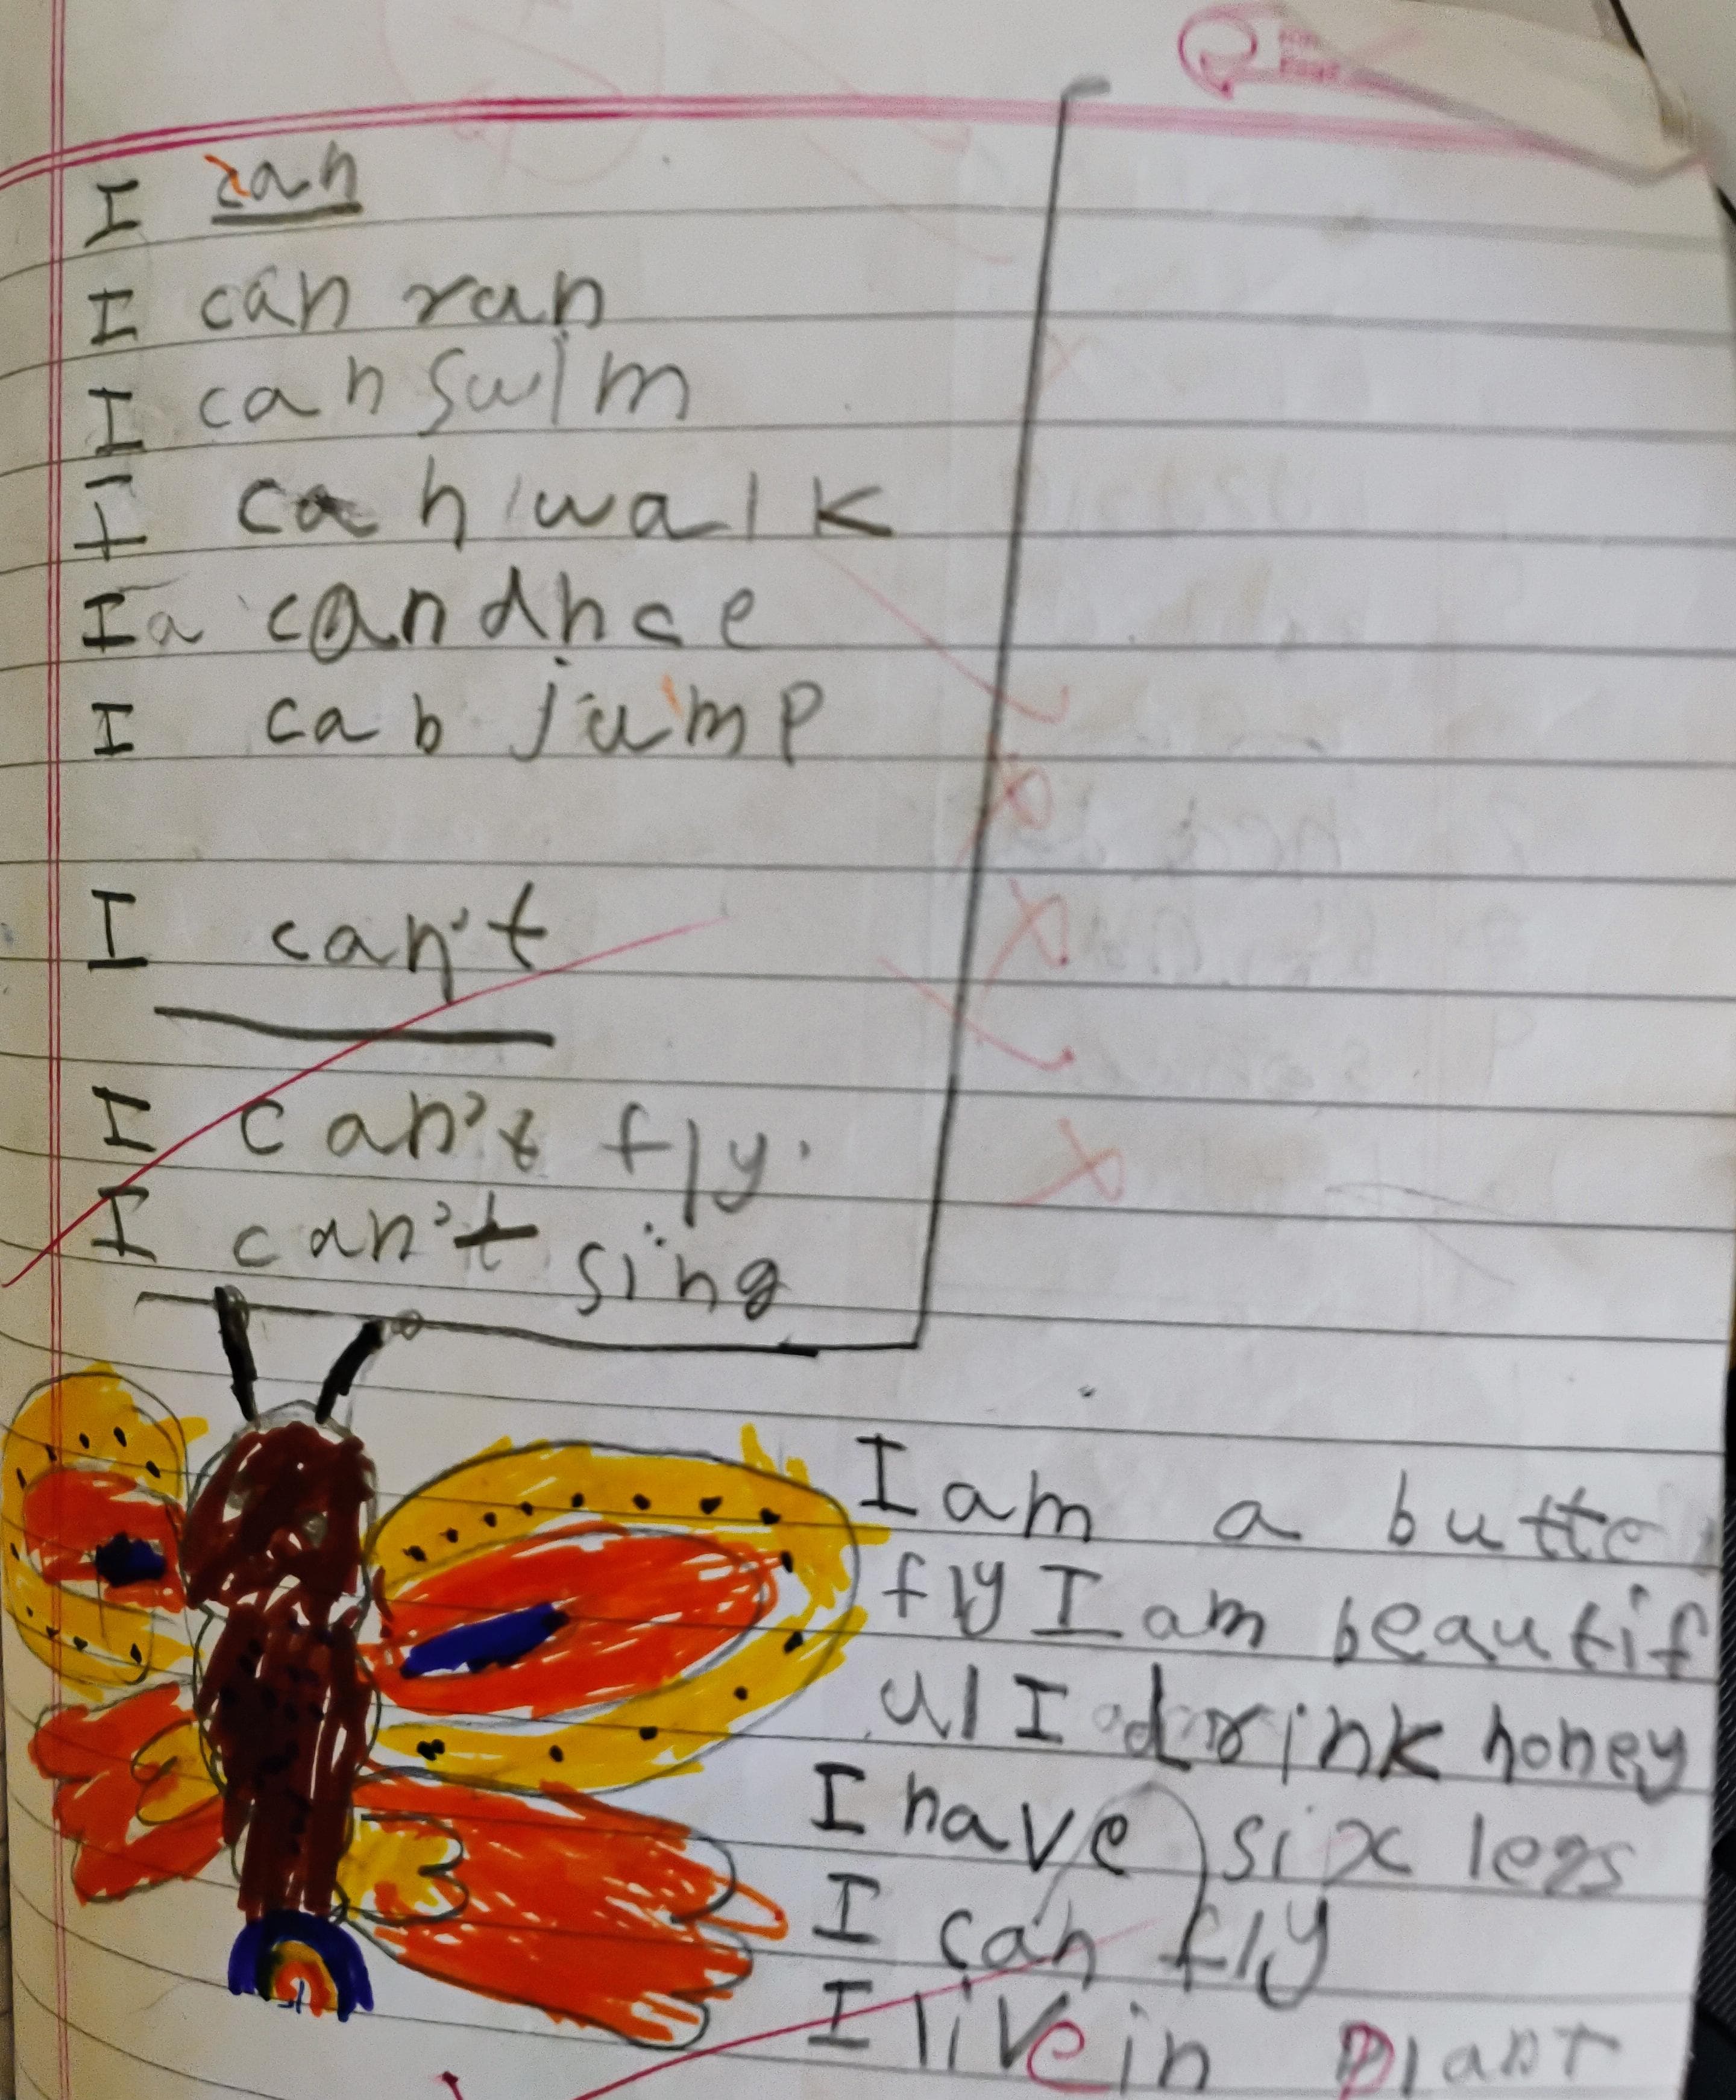 I can
I can ran
I can swim
I can walk
I a candnce
I cab jump
I can't
I can't fly.
I can't sing
I am a butte
fly I am beautif
ul I drink honey
I have six legs
I can fly
I live in plant